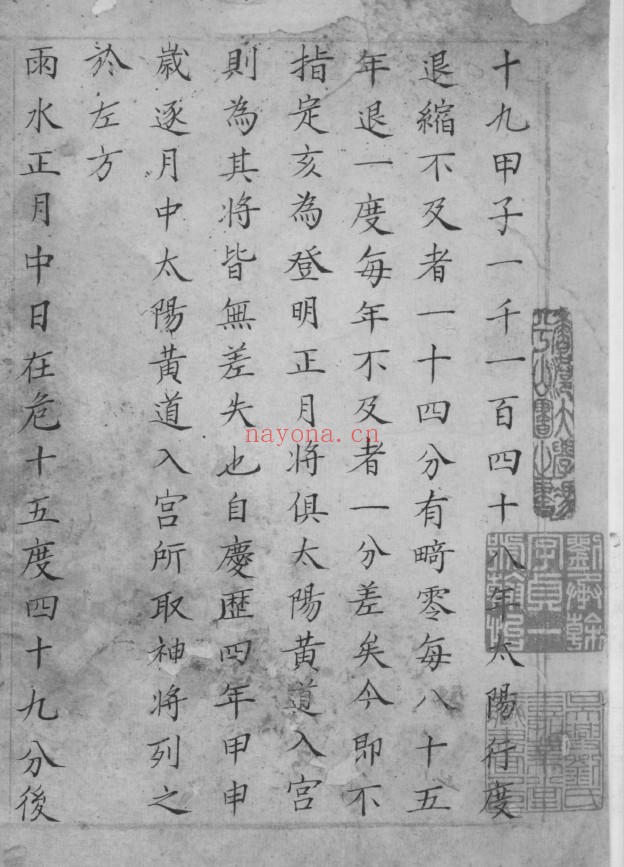 十九甲子一千一百四十八年太陽行度
退縮不及者一十四分有畸零每八十五
年退一度每年不及者一分差矣今即不
指定亥為登明正月將俱太陽黃道入宮
則為其將皆無差失也自慶歷四年甲申
歲逐月中太陽黃道入宮所取神將列之
於左方
雨水正月中日在危十五度四十九分後
nayona.cn
劉承幹
字貞一
號翰怡